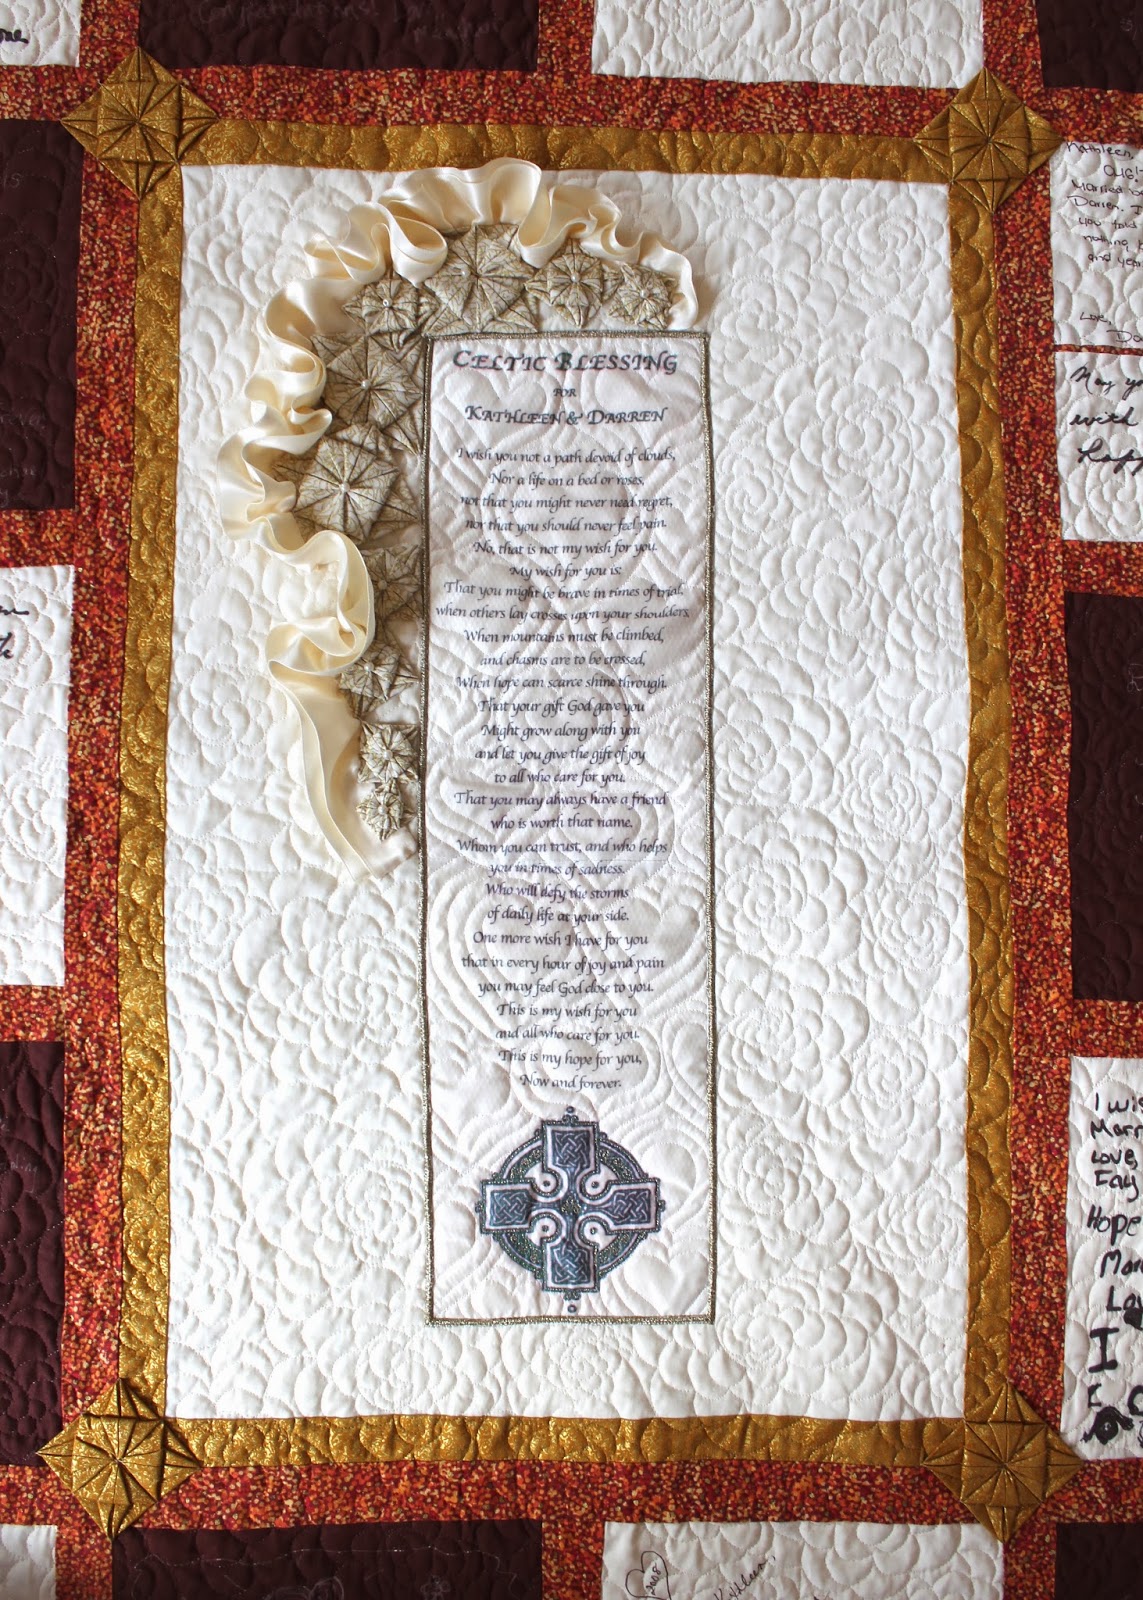 Congratulations
one
Kathleen,
OMG!
Married
Darren. I
you told
nothing
and year
Love,
CELTIC BLESSING
FOR
KATHLEEN & DARREN
I wish you not a path devoid of clouds,
Nor a life on a bed or roses,
not that you might never need regret,
nor that you should never feel pain.
No, that is not my wish for you.
My wish for you is:
That you might be brave in times of trial,
when others lay crosses upon your shoulders.
When mountains must be climbed,
and chasms are to be crossed,
When hope can scarce shine through.
That your gift God gave you
Might grow along with you
and let you give the gift of joy
to all who care for you.
That you may always have a friend
who is worth that name.
Whom you can trust, and who helps
you in times of sadness.
Who will defy the storms
of daily life at your side.
One more wish I have for you
that in every hour of joy and pain
you may feel God close to you.
This is my wish for you
and all who care for you.
This is my hope for you,
Now and forever.
May
with
I
Marr
Love,
Fay
Hope
I
2008
Kathleen,